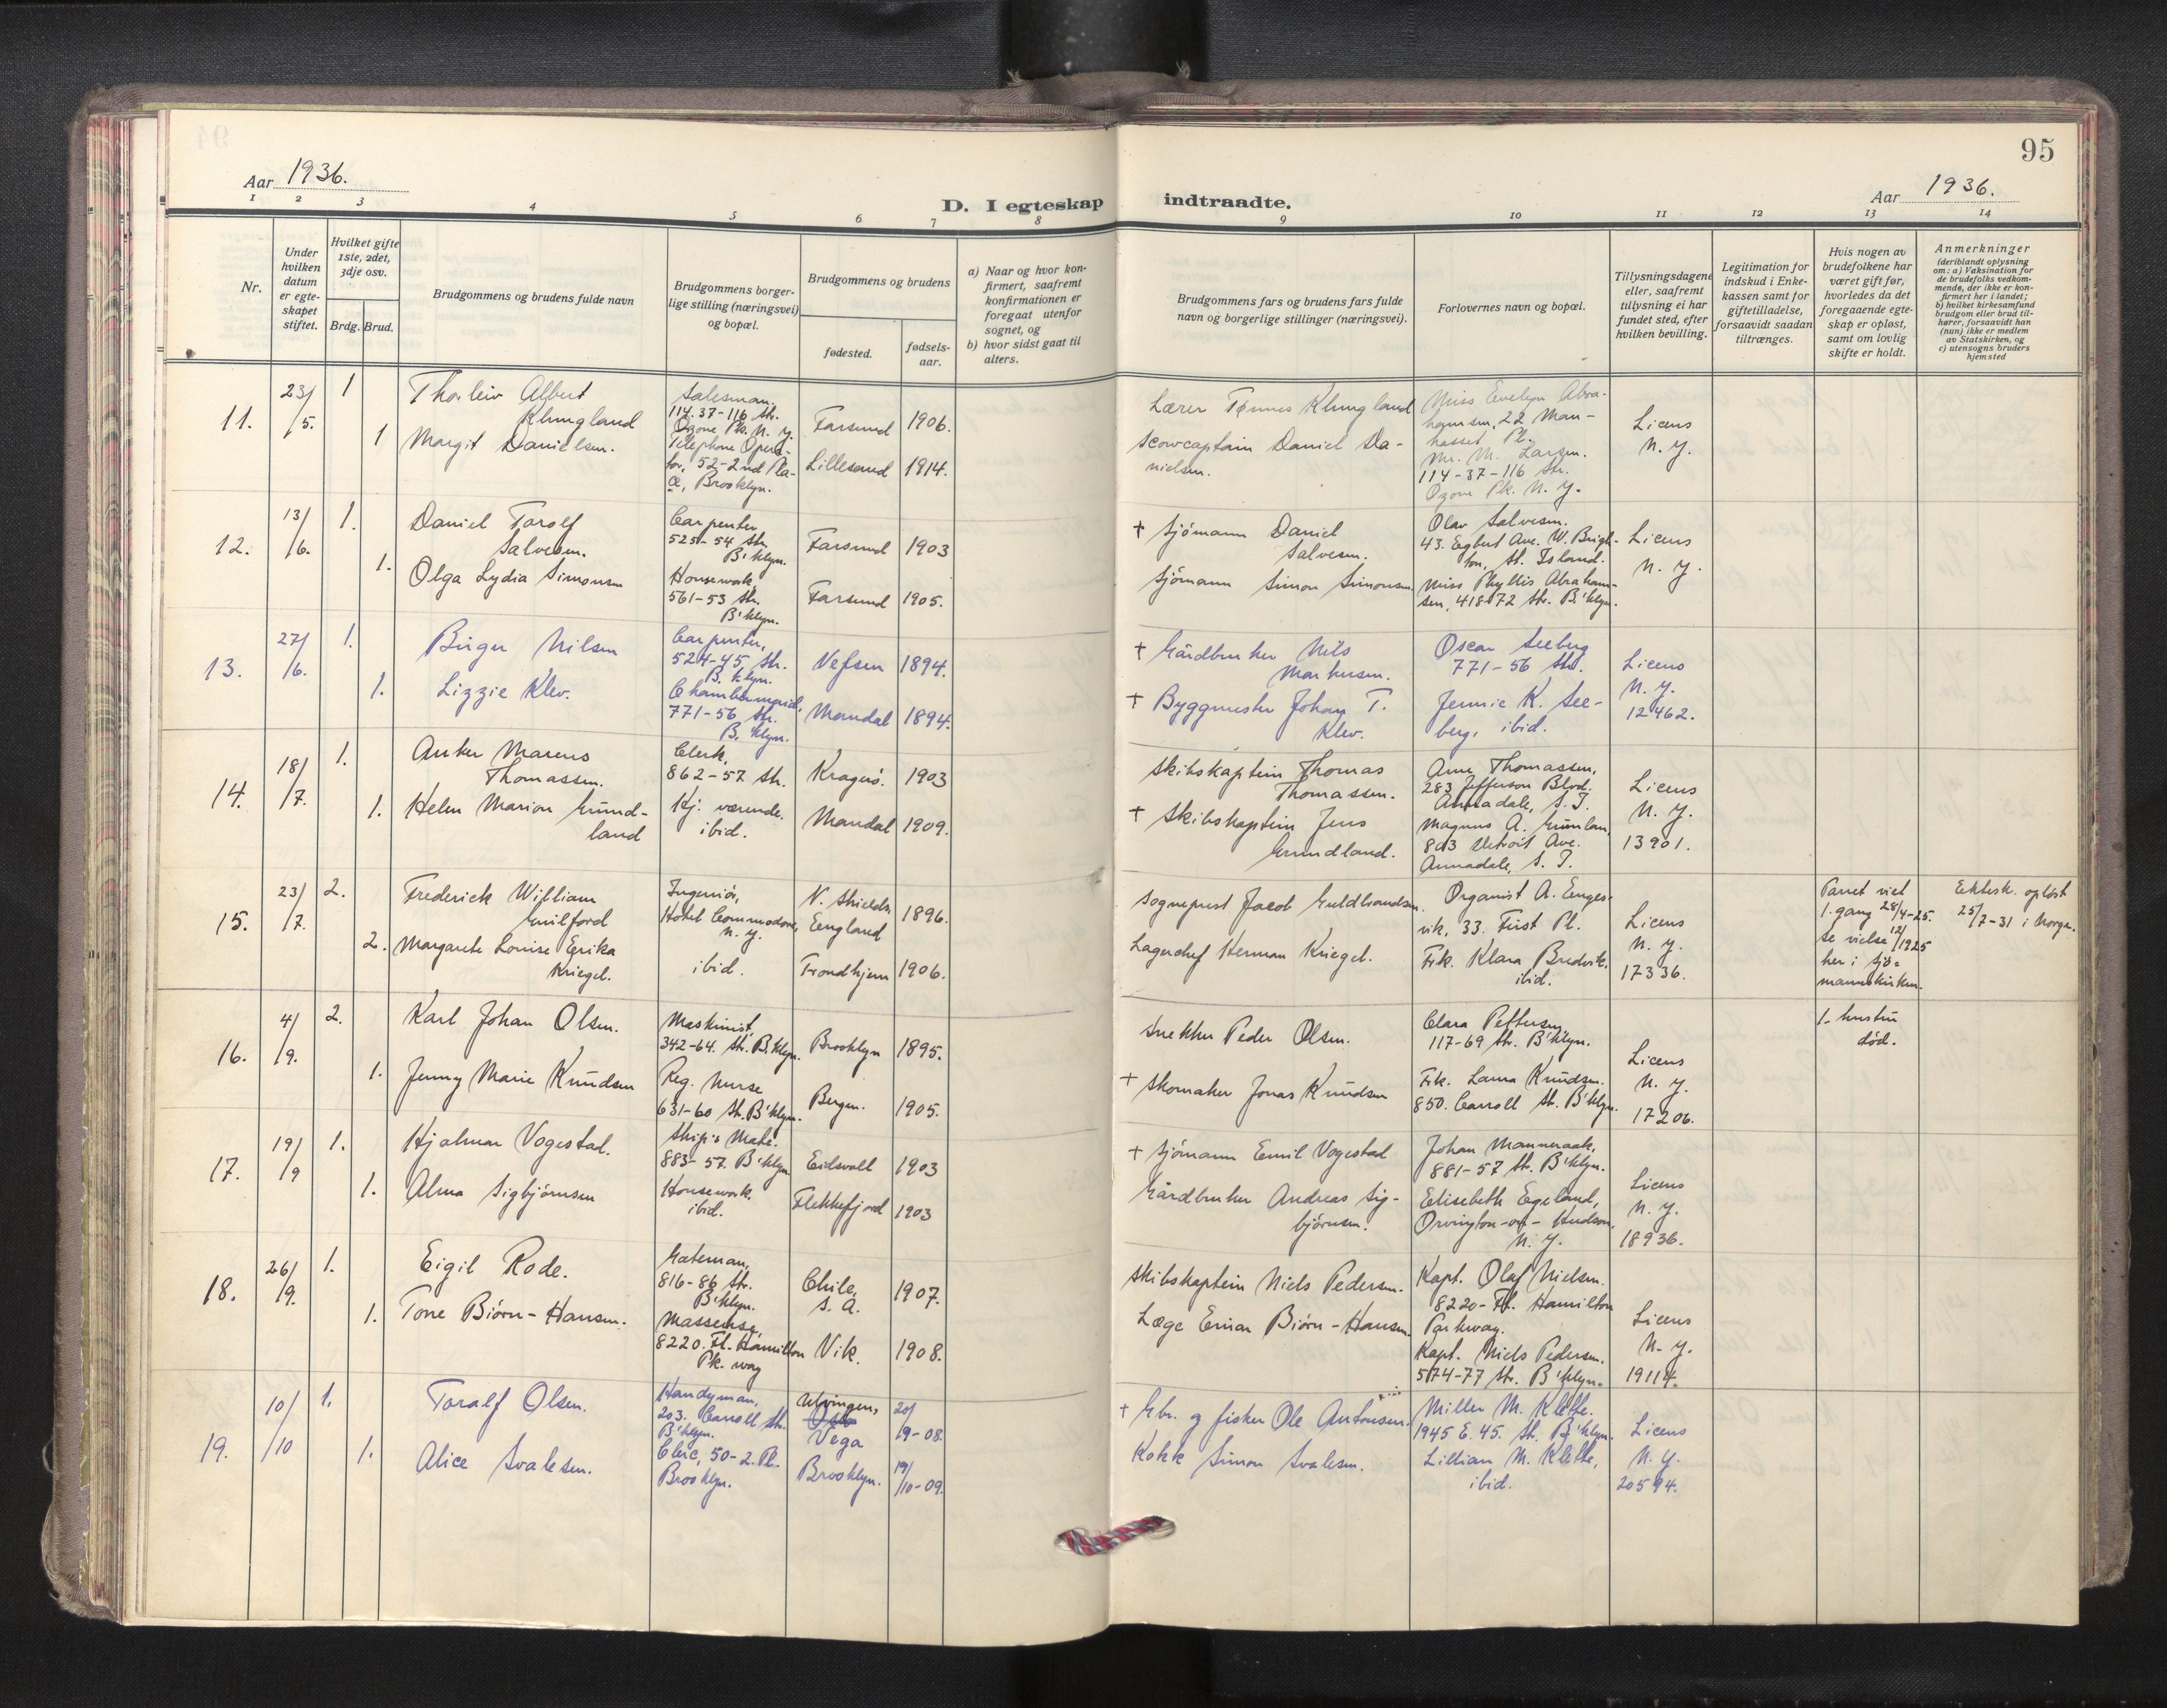 95
Aar 1936.
Aar 1936.
D. I egteskap indtraadte.
1 2 3 4 5 6 7 8 9 10 11 12 13 14
Nr.
Under
hvilken
datum
er egte-
skapet
stiftet.
Hvilket gifte
1ste, 2det,
3dje osv.
Brdg. Brud.
Brudgommens og brudens fulde navn
Brudgommens borger-
lige stilling (næringsvei)
og bopæl.
Brudgommens og brudens
fødested.
fødsels-
aar.
a) Naar og hvor kon-
firmert, saafremt
konfirmationen er
foregaat utenfor
sognet, og
b) hvor sidst gaat til
alters.
Brudgommens fars og brudens fars fulde
navn og borgerlige stillinger (næringsvei).
Forlovernes navn og bopæl.
Tillysningsdagene
eller, saafremt
tillysning ei har
fundet sted, efter
hvilken bevilling.
Legitimation for
indskud i Enke-
kassen samt for
giftetilladelse,
forsaavidt saadan
tiltrænges.
Hvis nogen av
brudefolkene har
været gift før,
hvorledes da det
foregaaende egte-
skap er opløst,
samt om lovlig
skifte er holdt.
Anmerkninger
(deriblandt oplysning
om: a) Vaksination for
de brudefolks vedkom-
mende, der ikke er kon-
firmert her i landet;
b) hvilket kirkesamfund
brudgom eller brud til-
hører, forsaavidt han
(hun) ikke er medlem
av Statskirken, og
c) utensogns bruders
hjemsted
11.
23/5.
1
Thorleiv Albert
Klungland
1
Margit Danielsen.
Salesman.
114.37-116 Str.
Ozone Pk. N.Y.
Telephone Opera-
tor, 52-2nd Pla-
ce, Brooklyn.
Farsund 1906.
Lillesand 1914.
Lærer Tønnes Klungland
Scowcaptain Daniel Da-
nielsen.
Miss Evelyn Abra-
hamsen, 22 Man-
hasset Pl.
Mr. M. Larsen.
114-37-116 Str.
Ozone Pk. N.Y.
Licens
N.Y.
12.
13/6.
1.
Daniel Torolf
Salvesen.
1.
Olga Lydia Simonsen
Carpenter
525-54 Str.
B'klyn.
Housework
561-53 Str.
B'klyn.
Farsund 1903
Farsund 1905.
† Sjömann Daniel
Salvesen.
Sjömann Simon Simonsen.
Olav Salvesen.
43. Egbert Ave. W. Brigh-
ton, St. Island.
Miss Phyllis Abraham-
sen, 418-72 Str. B'klyn.
Licens
N.Y.
13.
27/6.
1.
Birger Nilsen
1.
Lizzie Klev.
Carpenter,
524-45 Str.
B.klyn.
Chambermaid,
771-56 Str.
B.klyn.
Vefsen 1894.
Mandal 1894.
† Gårdbruker Nils
Markusen.
† Byggmester Johan T.
Klev.
Oscar Seeberg
771-56 Str.
Jennie K. See-
berg, ibid.
Licens
N.Y.
12462.
14.
18/7.
1.
Anker Marcus
Thomassen.
1.
Helen Marion Grund-
land
Clerk,
862-57 Str.
Hj. værende.
ibid.
Kragerö. 1903
Mandal 1909.
Skibskaptein Thomas
Thomassen.
† Skibskaptein Jens
Grundland.
Arne Thomassen,
283 Jefferson Blvd.
Annadale, S.I.
Magnus A.
Detroit Ave.
Annadale, S.I.
Licens
N.Y.
13901.
15.
23/7.
2.
Frederick William
Guilford
2.
Margarete Louise Erika
Kriegel.
Ingeniör,
Hotel Commodore,
N.Y.
ibid.
N. Shields
England 1896.
Trondhjem 1906.
Sogneprest Jacob Guldbrandsen.
Lagerchef Herman Kriegel.
Organist A. Enges-
vik, 33. First Pl.
Frk. Klara Bredvik.
ibid.
Licens
N.Y.
17336.
Parret viet
1. gang 28/4-25.
se vielse 12/1925
her i Sjö-
mannskirken.
Ektesk. oplöst
25/7-31 i Norge.
16.
4/9.
2.
Karl Johan Olsen.
1.
Jenny Marie Knudsen
Maskinist
342-64. Str. B.klyn.
Reg. Nurse
631-60 Str. B'klyn.
Brooklyn 1895.
Bergen. 1905.
Snekker Peder Olsen.
† Skomaker Jonas Knudsen
Clara Pettersen
117-69 Str. B'klyn.
Frk. Laura Knudsen.
850. Carroll St. B'klyn.
Licens
N.Y.
17206.
1. hustru
död.
17.
19/9
1.
Hjalmar Vogestad.
1.
Alma Sigbjörnsen
Ship's Mate.
883-57. B'klyn
Housework.
ibid.
Eidsvoll 1903
Flekkefjord 1903
† Sjömann Emil Vogestad
Gårdbruker Andreas Sig-
björnsen.
Johan Manneraak,
881-57 Str. B'klyn.
Elisebeth Egeland,
Orvington-on-Hudson,
N.Y.
Licens
N.Y.
18936.
18.
26/9.
1.
Eigil Rode.
1.
Tone Biörn-Hansen.
Gateman,
816-86 Str.
B'klyn.
Massøse,
8220. Ft. Hamilton
Pk. way
Chile,
S.A. 1907.
Vik. 1908.
Skibskaptein Niels Pedersen.
Læge Einar Biörn-Hansen.
Kapt. Olaf Nielsen.
8220-Ft. Hamilton
Parkway.
Kapt. Niels Pedersen.
574-77 Str. B'klyn.
Licens
N.Y.
19114.
19.
10/10
1.
Toralf Olsen.
1.
Alice Svalesen.
Handyman,
203. Carroll Str.
B'klyn.
Cleic, 50-2. Pl.
Brooklyn.
Ulvingen,
Vega
20/9-08.
Brooklyn.
19/10-09.
† Gbr. og fisker Ole Antonsen.
Kokk Simon Svalesen.
Miller M. Klette.
1945 E. 45. St. B'klyn.
Lillian M. Klette,
ibid.
Licens
N.Y.
20594.